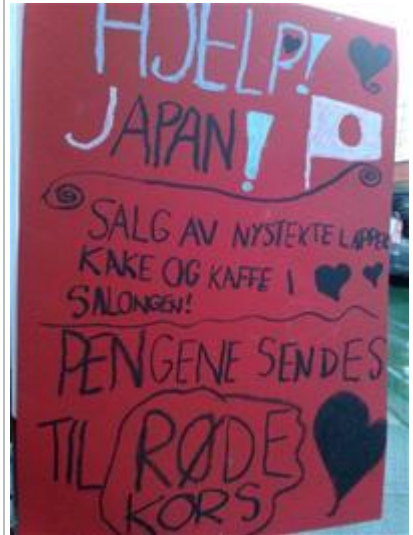 HJELP!
JAPAN!
SALG AV NYSTEKTE LAPPER
KAKE OG KAFFE I
SALONGEN!
PENGENE SENDES
TIL RØDE
KORS